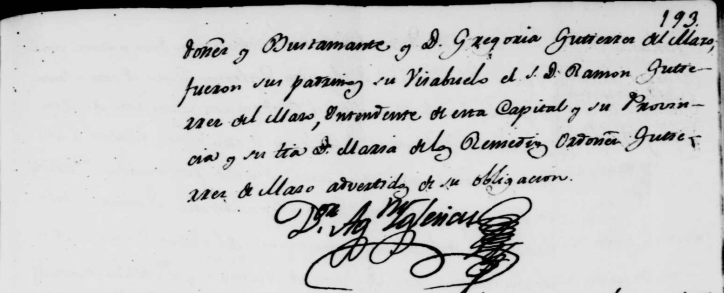 193.
doñez y Bustamante y D. Gregoria Gutierrez del Mazo,
fueron sus padrinos su Visabuelo el S. D. Ramon Gutie-
rrez del Mazo, Yntendente de esta Capital y su Provin-
cia y su tia D.ª Maria de los Remedios Ordoñez Gutie-
rrez de Mazo advertidos de su obligacion.
Iglesias